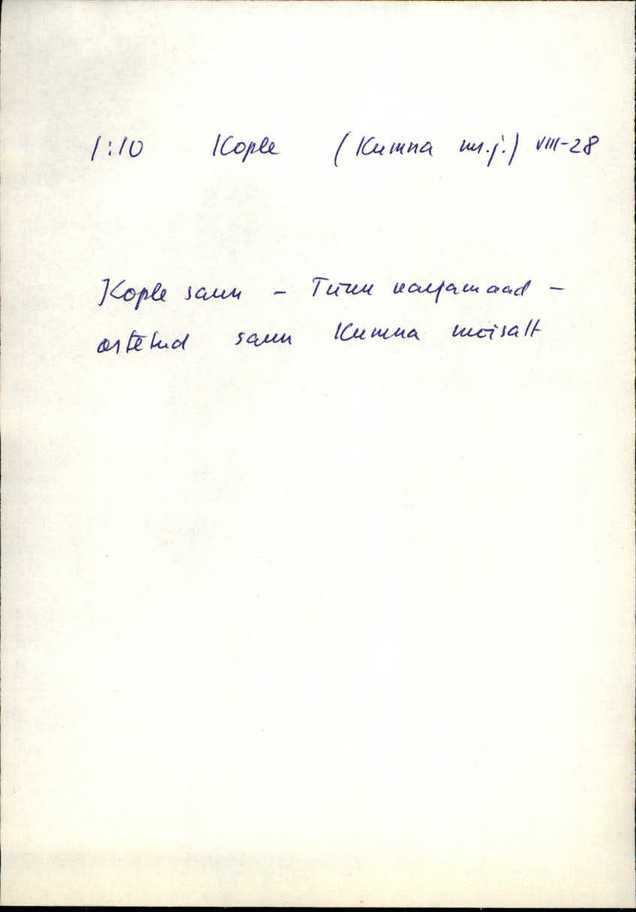 1:10 Kople (Kumna m.j.) VIII-28
Kople saun - Tiinu karjamaad -
ostetud saun Kumna mõisalt